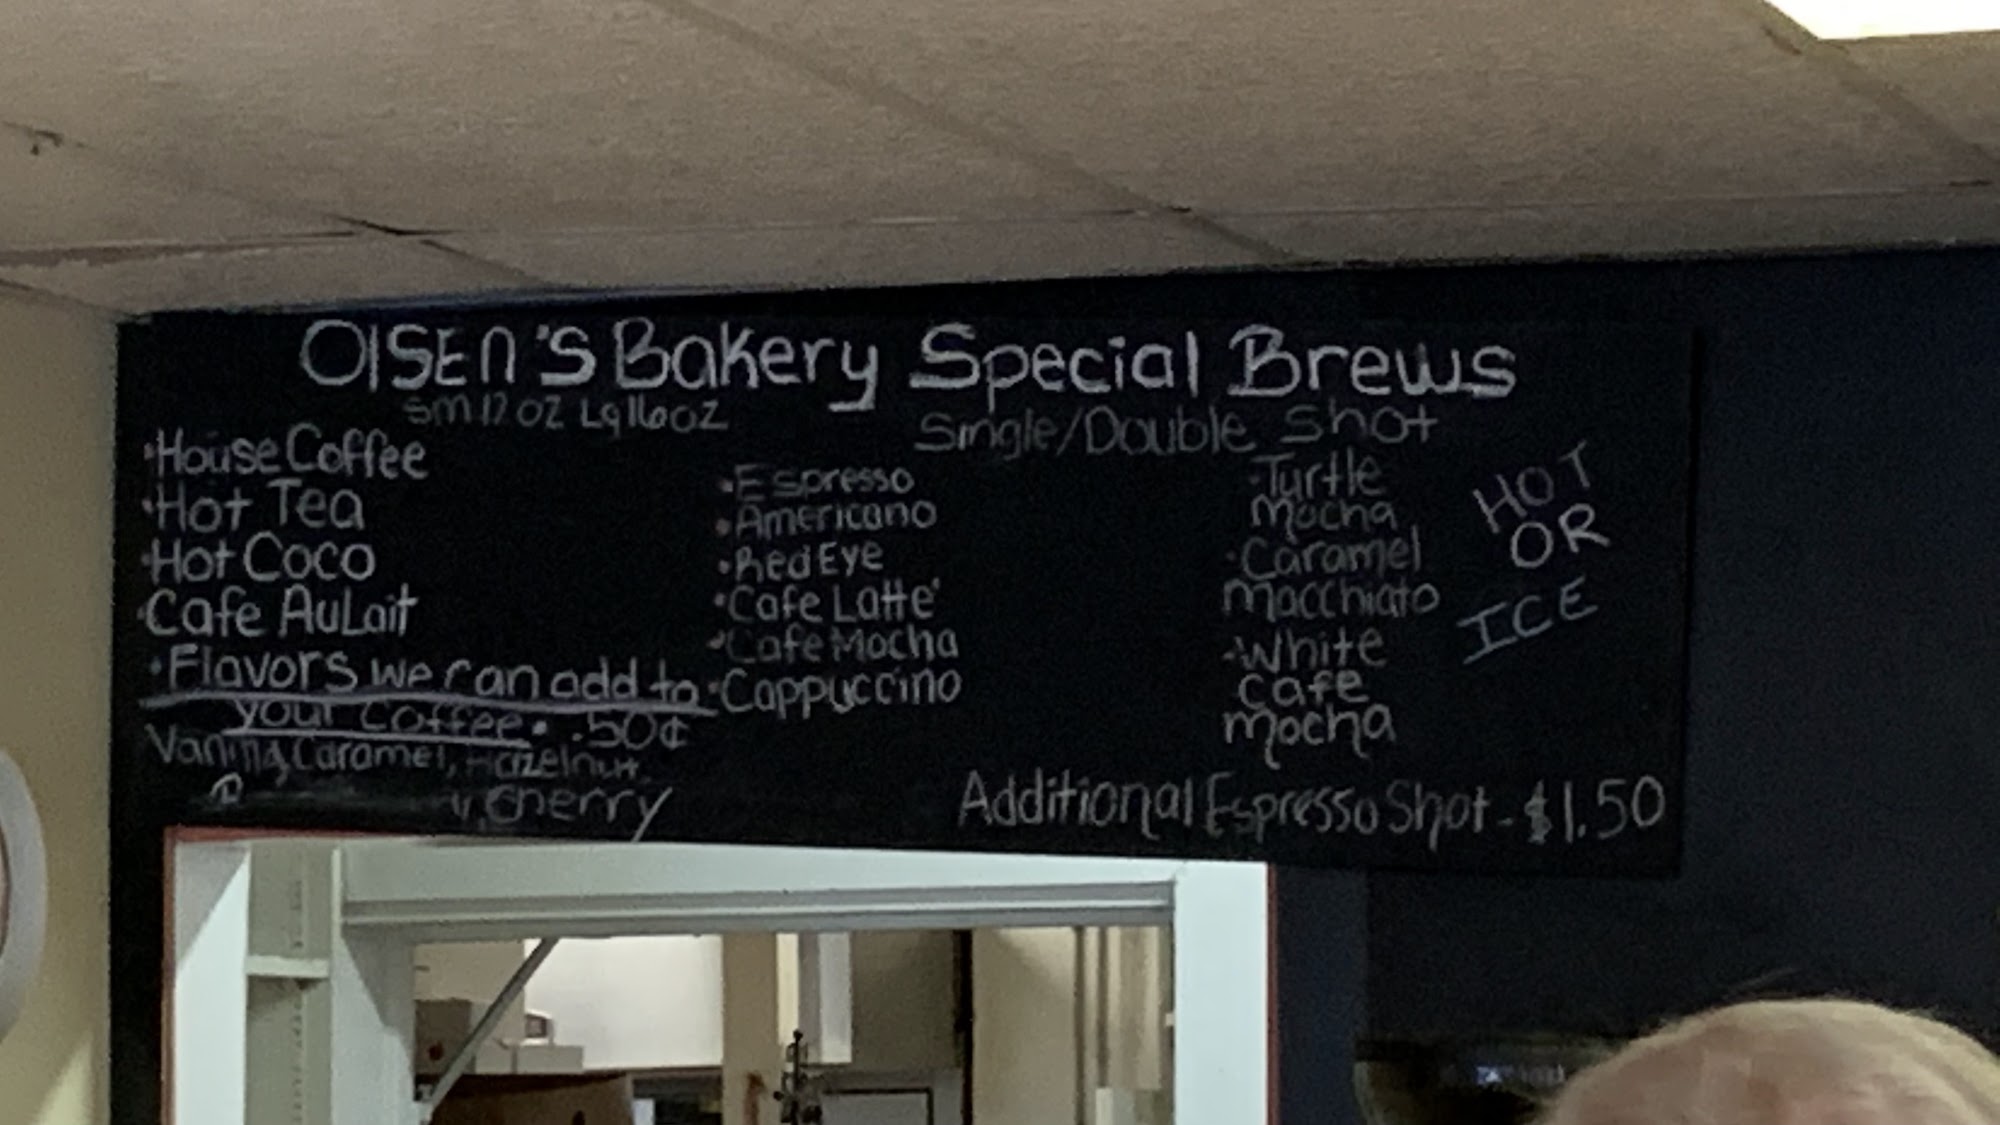 OlSEn'S Bakery Special Brews
Sm 12 OZ Lg 16oz
Single/Double Shot
•House Coffee
•Hot Tea
•Hot Coco
•Cafe AuLait
•Flavors we can add to
your Coffee • .50¢
Vanilla, Caramel, Hazelnut,
Cherry
•Espresso
•Americano
•Red Eye
•Cafe Latte'
•Cafe Mocha
•Cappuccino
•Turtle
Mocha
•Caramel
Macchiato
•White
Cafe
Mocha
HOT
OR
ICE
Additional Espresso Shot - $1.50